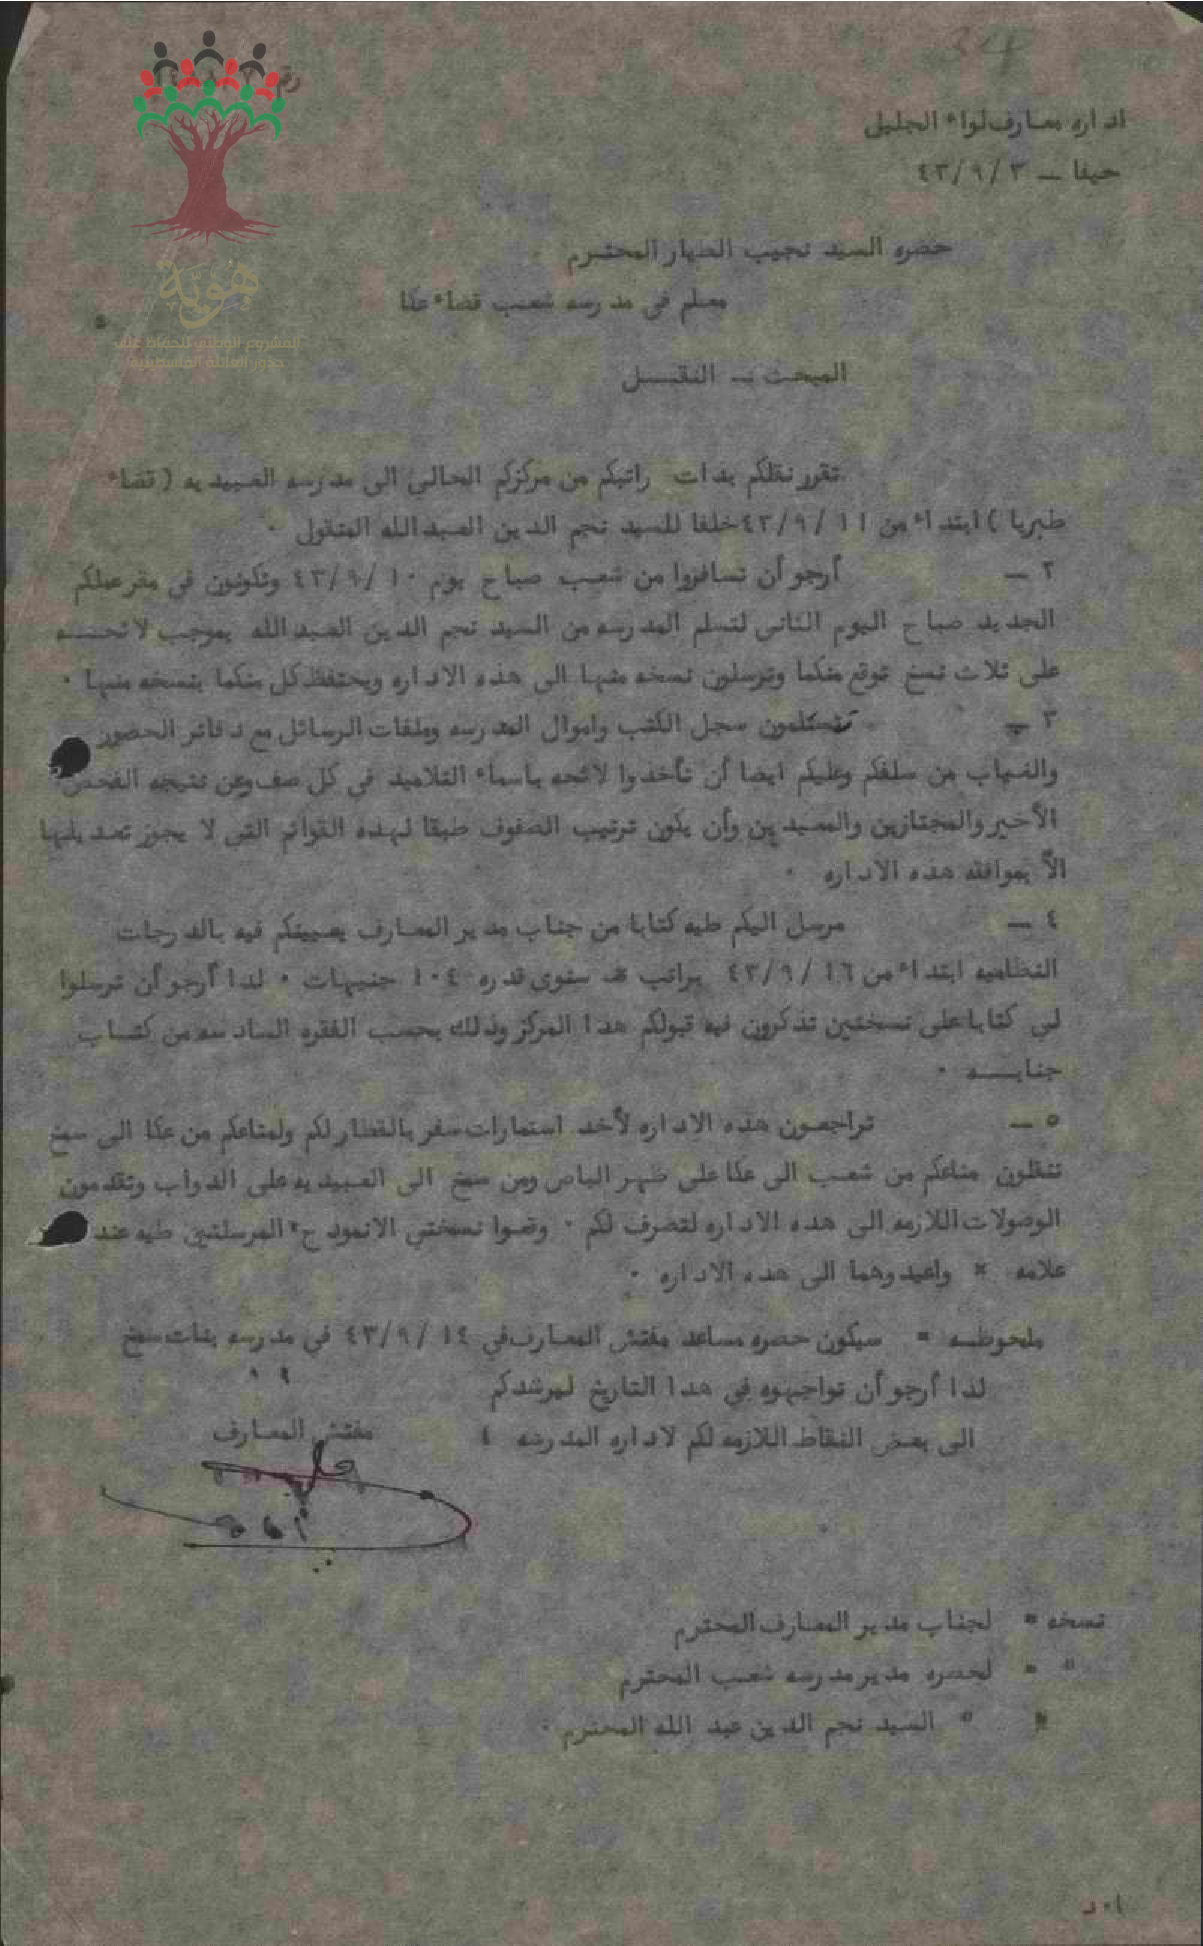 اداره معارف لواء الجليل
حيفا — ٤٣/٩/٣
هوية
المشروع الوطني للحفاظ على
جذور العائلة الفلسطينية
حضره السيد نجيب الطيار المحترم
معلم في مدرسه شعب قضاء عكا
المبحث — النقـــل
تقرر نقلكم بذات راتبكم من مركزكم الحالى الى مدرسه العبيديه ( قضاء
طبريا ) ابتداء من ٤٣/٩/١١ خلفا للسيد نجم الدين العبدالله المنقول ٠
٢ — أرجو أن تسافروا من شعب صباح يوم ٤٣/٩/١٠ وتكونون في مقر عملكم
الجديد صباح اليوم الثانى لتسلم المدرسه من السيد نجم الدين العبدالله بموجب لائحـــه
على ثلاث نسخ توقع منكما وترسلون نسخه منها الى هذه الاداره ويحتفظ كل منكما بنسخه منها ٠
٣ — تستلمون سجل الكتب واموال المدرسه وملفات الرسائل مع دفاتر الحضور
والغياب من سلفكم وعليكم ايضا أن تأخذوا لائحه بأسماء التلاميذ في كل صف وعن نتيجه الفحص
الأخير والمجتازين والمعيدين وأن يكون ترتيب الصفوف طبقا لهذه القوائم التى لا يجوز تعديلها
الاّ بموافقه هذه الاداره ٠
٤ — مرسل اليكم طيه كتابا من جناب مدير المعارف يعيينكم فيه بالدرجات
النظاميه ابتداء من ٤٣/٩/١٦ براتب سنوى قدره ١٠٤ جنيهات ٠ لذا أرجو أن ترسلوا
لى كتابا على نسختين تذكرون فيه قبولكم هذا المركز وذلك بحسب الفقره السادسه من كتـاب
جنابـــه ٠
٥ — تراجعون هذه الاداره لأخذ استمارات سفر بالقطار لكم ولمتاعكم من عكا الى سمخ
تنقلون متاعكم من شعب الى عكا على ظهر الباص ومن سمخ الى العبيديه على الدواب وتقدمون
الوصولات اللازمه الى هذه الاداره لتصرف لكم ٠ وقعوا نسختي الانموذج المرسلتين طيه عند
علامه × واعيدوهما الى هذه الاداره ٠
ملحوظـه = سيكون حضره مساعد مفتش المعارف في ٤٣/٩/١٤ في مدرسه بنات سمخ
لذا أرجو أن تواجهوه في هذا التاريخ ليرشدكم
الى بعض النقاط اللازمه لكم لاداره المدرسه
مفتش المعارف
نسخه = لجناب مدير المعارف المحترم
" = لحضره مدير مدرسه شعب المحترم
" السيد نجم الدين عبد الله المحترم ٠